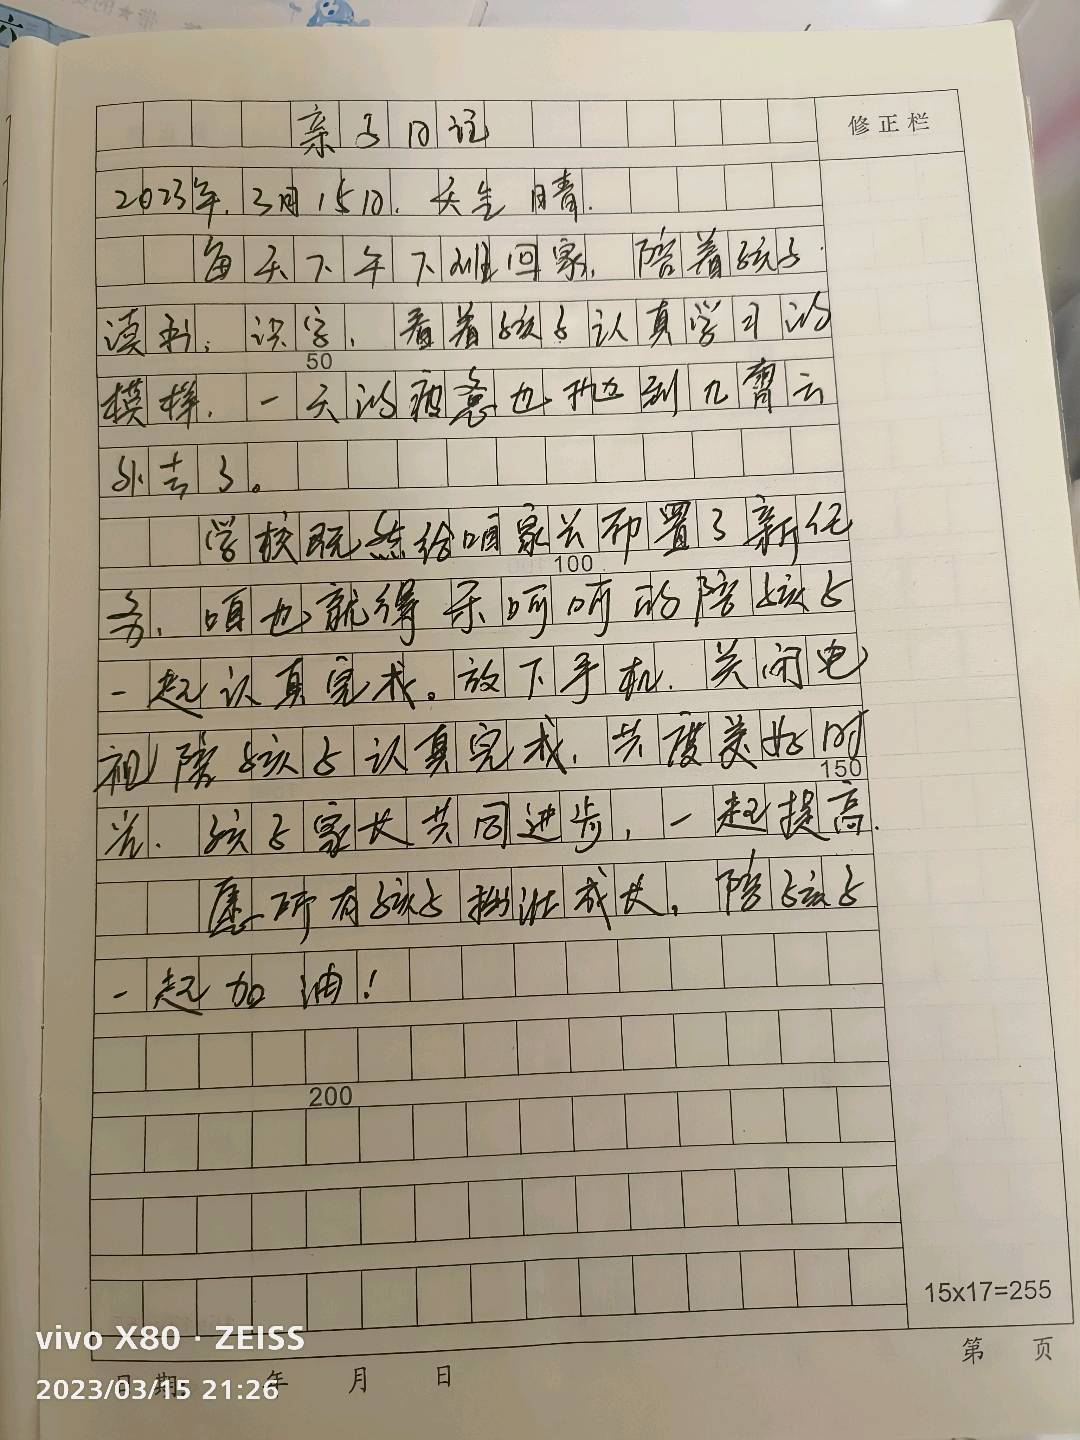 亲子日记
修正栏
2023年.3月15日.天气 晴.
每天下午下班回家,陪着孩子
读书,识字,看着孩子认真学习的
模样,一天的疲惫也抛到九霄云
外去了。
50
学校既然给咱家长布置了新任
100
务,咱也就得乐呵呵的陪孩子
一起认真完成。放下手机.关闭电
视陪孩子认真完成,共度美好时
150
光.孩子家长共同进步,一起提高.
愿所有孩子茁壮成长,陪孩子
一起加油!
200
15x17=255
第 页
vivo X80 · ZEISS
2023/03/15 21:26
日期: 年 月 日